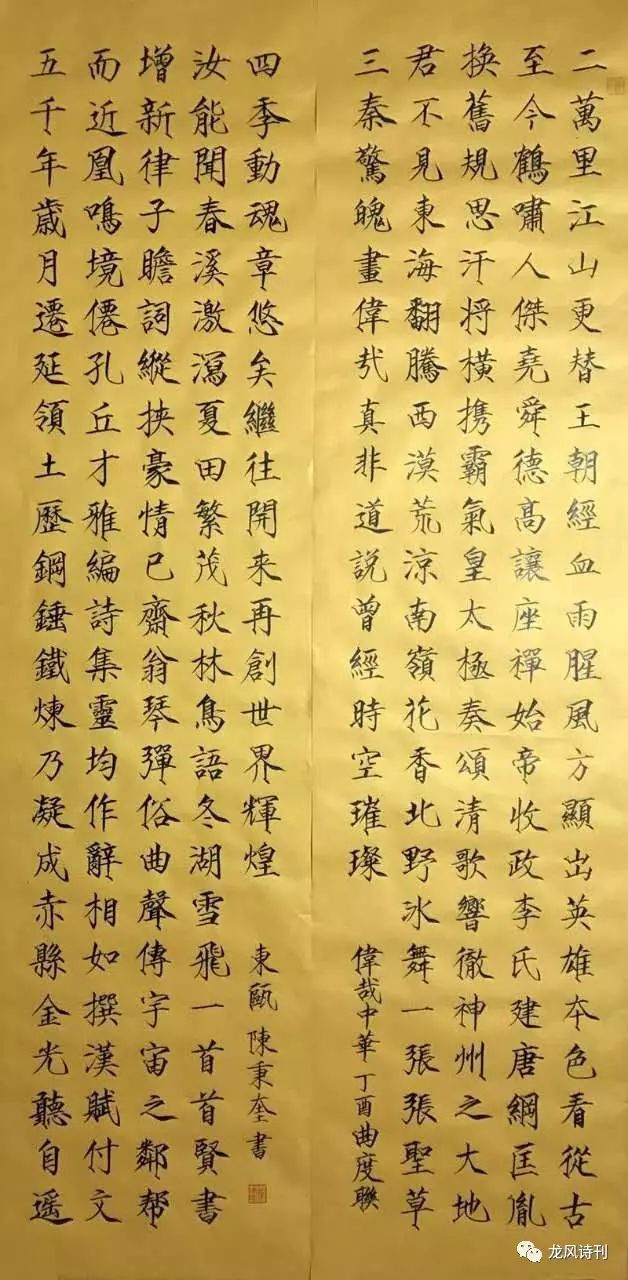 二萬里江山更替王朝經血雨腥風方顯出英雄本色看從古
至今鶴嘯人傑堯舜德高讓座禪始帝收政李氏建唐綱匡胤
換舊規思汗將橫携霸氣皇太極奏頌清歌響徹神州之大地
君不見東海翻騰西漠荒涼南嶺花香北野冰舞一張張聖草
三秦驚魄畫偉哉真非道說曾經時空璀璨
偉哉中華 丁酉曲度聯
五千年歲月遷延領土歷鋼錘鐵煉乃凝成赤縣金光聽自遥
而近凰鳴境僊孔丘才雅編詩集靈均作辭相如撰漢賦付文
增新律子瞻詞縱挾豪情已齋翁琴彈俗曲聲傳宇宙之鄰幫
汝能聞春溪激瀉夏田繁茂秋林鳥語冬湖雪飛一首首賢書
四季動魂章悠矣繼往開來再創世界輝煌
東甌陳秉奎書
龙风诗刊